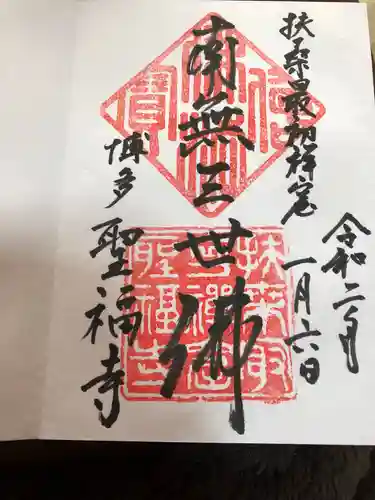 扶桑最初禅窟
令和二年
一月六日
南無三世佛
博多
聖福寺
扶桑最
初禪窟
聖福寺